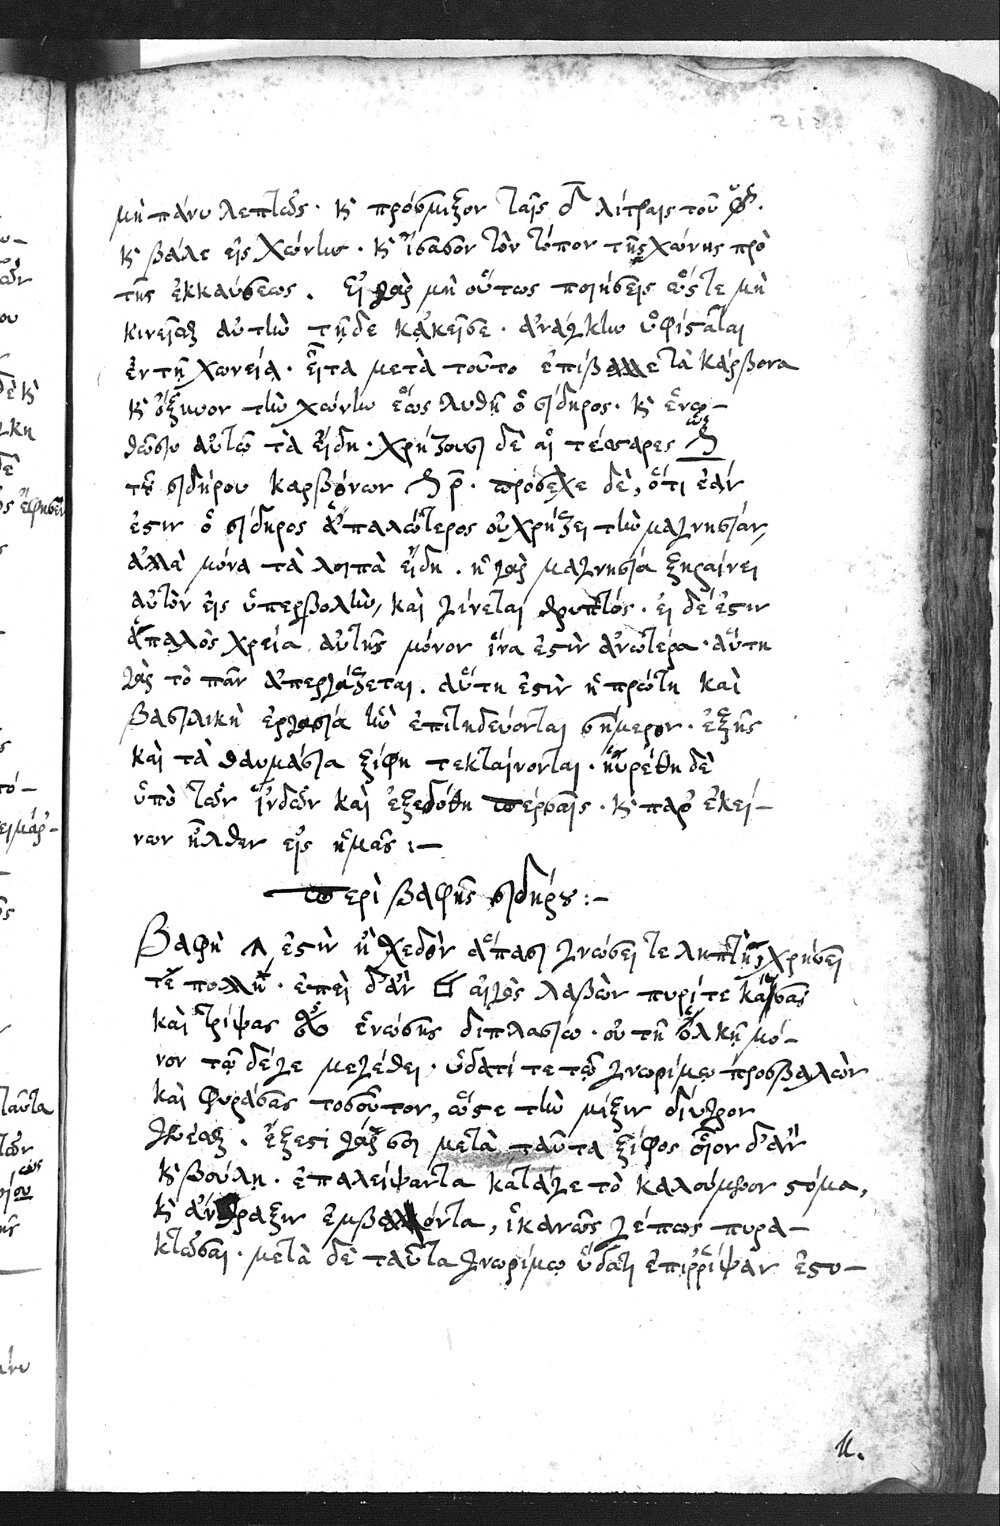 μὴ πάνυ λεπτῶς· κ πρόσμιξον ταῖς δ λίτραις τοῦ
κ βάλε εἰς χώνην· κ ἴσασον τὸν τόπον τῆς χώνης πρὸ
τῆς ἐκκαύσεως. εἰ γὰρ μὴ οὕτως ποιήσεις ὥστε μὴ
κινεῖσθαι αὐτὴν τῇδε κἀκεῖσε· ἀνάγκην ὑφίσταται
ἐν τῇ χωνείᾳ· εἶτα μετὰ τοῦτο ἐπίβαλλε τὰ κάρβονα
κ ὄξυνον τὴν χώνην ἕως λυθῇ ὁ σίδηρος· κ ἑνω-
θῶσιν αὐτῷ τὰ εἴδη· χρῄζουσι δὲ αἱ τέσσαρες
τοῦ σιδήρου καρβόνων ρ· πρόσεχε δὲ, ὅτι ἐάν
ἐστιν ὁ σίδηρος ἁπαλώτερος οὐ χρῄζει τὴν μαγνησίαν,
ἀλλὰ μόνα τὰ λοιπὰ εἴδη. ἡ γὰρ μαγνησία ξηραίνει
αὐτὸν εἰς ὑπερβολὴν, καὶ γίνεται θρυπτός· εἰ δέ ἐστιν
ἁπαλὸς χρεία αὐτῆς μόνον ἵνα ἐστὶν ἀνωτέρα· αὕτη
γὰρ τὸ πᾶν ἀπεργάζεται. αὕτη ἐστὶν ἡ πρώτη καὶ
βασιλικὴ ἐργασία ἣν ἐπιτηδεύονται σήμερον· ἐξ ἧς
καὶ τὰ θαυμάσια ξίφη τεκταίνονται· ηὑρέθη δὲ
ὑπὸ τῶν ἰνδῶν καὶ ἐξεδόθη πέρσαις· κ παρ' ἐκεί-
νων ἦλθεν εἰς ἡμᾶς :—
περὶ βαφῆς σιδήρου :—
Βαφὴ ἐστὶν ἢ σχεδὸν ἅπασι γνώσει τε ληπτὴ χρήσει
τε πολλῇ· ἐπεὶ δ' ἂν αἰγὸς λαβὼν πυρί τε καύσας
καὶ τρίψας ἑνώσῃς διπλασίῳ· οὐ τῇ ὁλκῇ μό-
νον τῷ δέ γε μεγέθει· ὕδατί τε τῷ γνωρίμῳ προσβαλὼν
καὶ φυράσας τοσοῦτον, ὥστε τὴν μίξιν δίυγρον
γενέσθαι. ἔξεστι γάρ σοι μετὰ ταῦτα ξίφος οἷον δ' ἂν
κ βούλῃ· ἐπαλείψαντα κατάγε τὸ καλούμενον στόμα,
κ ἄνθραξιν ἐμβαλόντα, ἱκανῶς γέ πως πυρα-
κτῶσαι· μετὰ δὲ ταῦτα γνωρίμῳ ὕδατι ἐπιρρίψαν ἐστο-